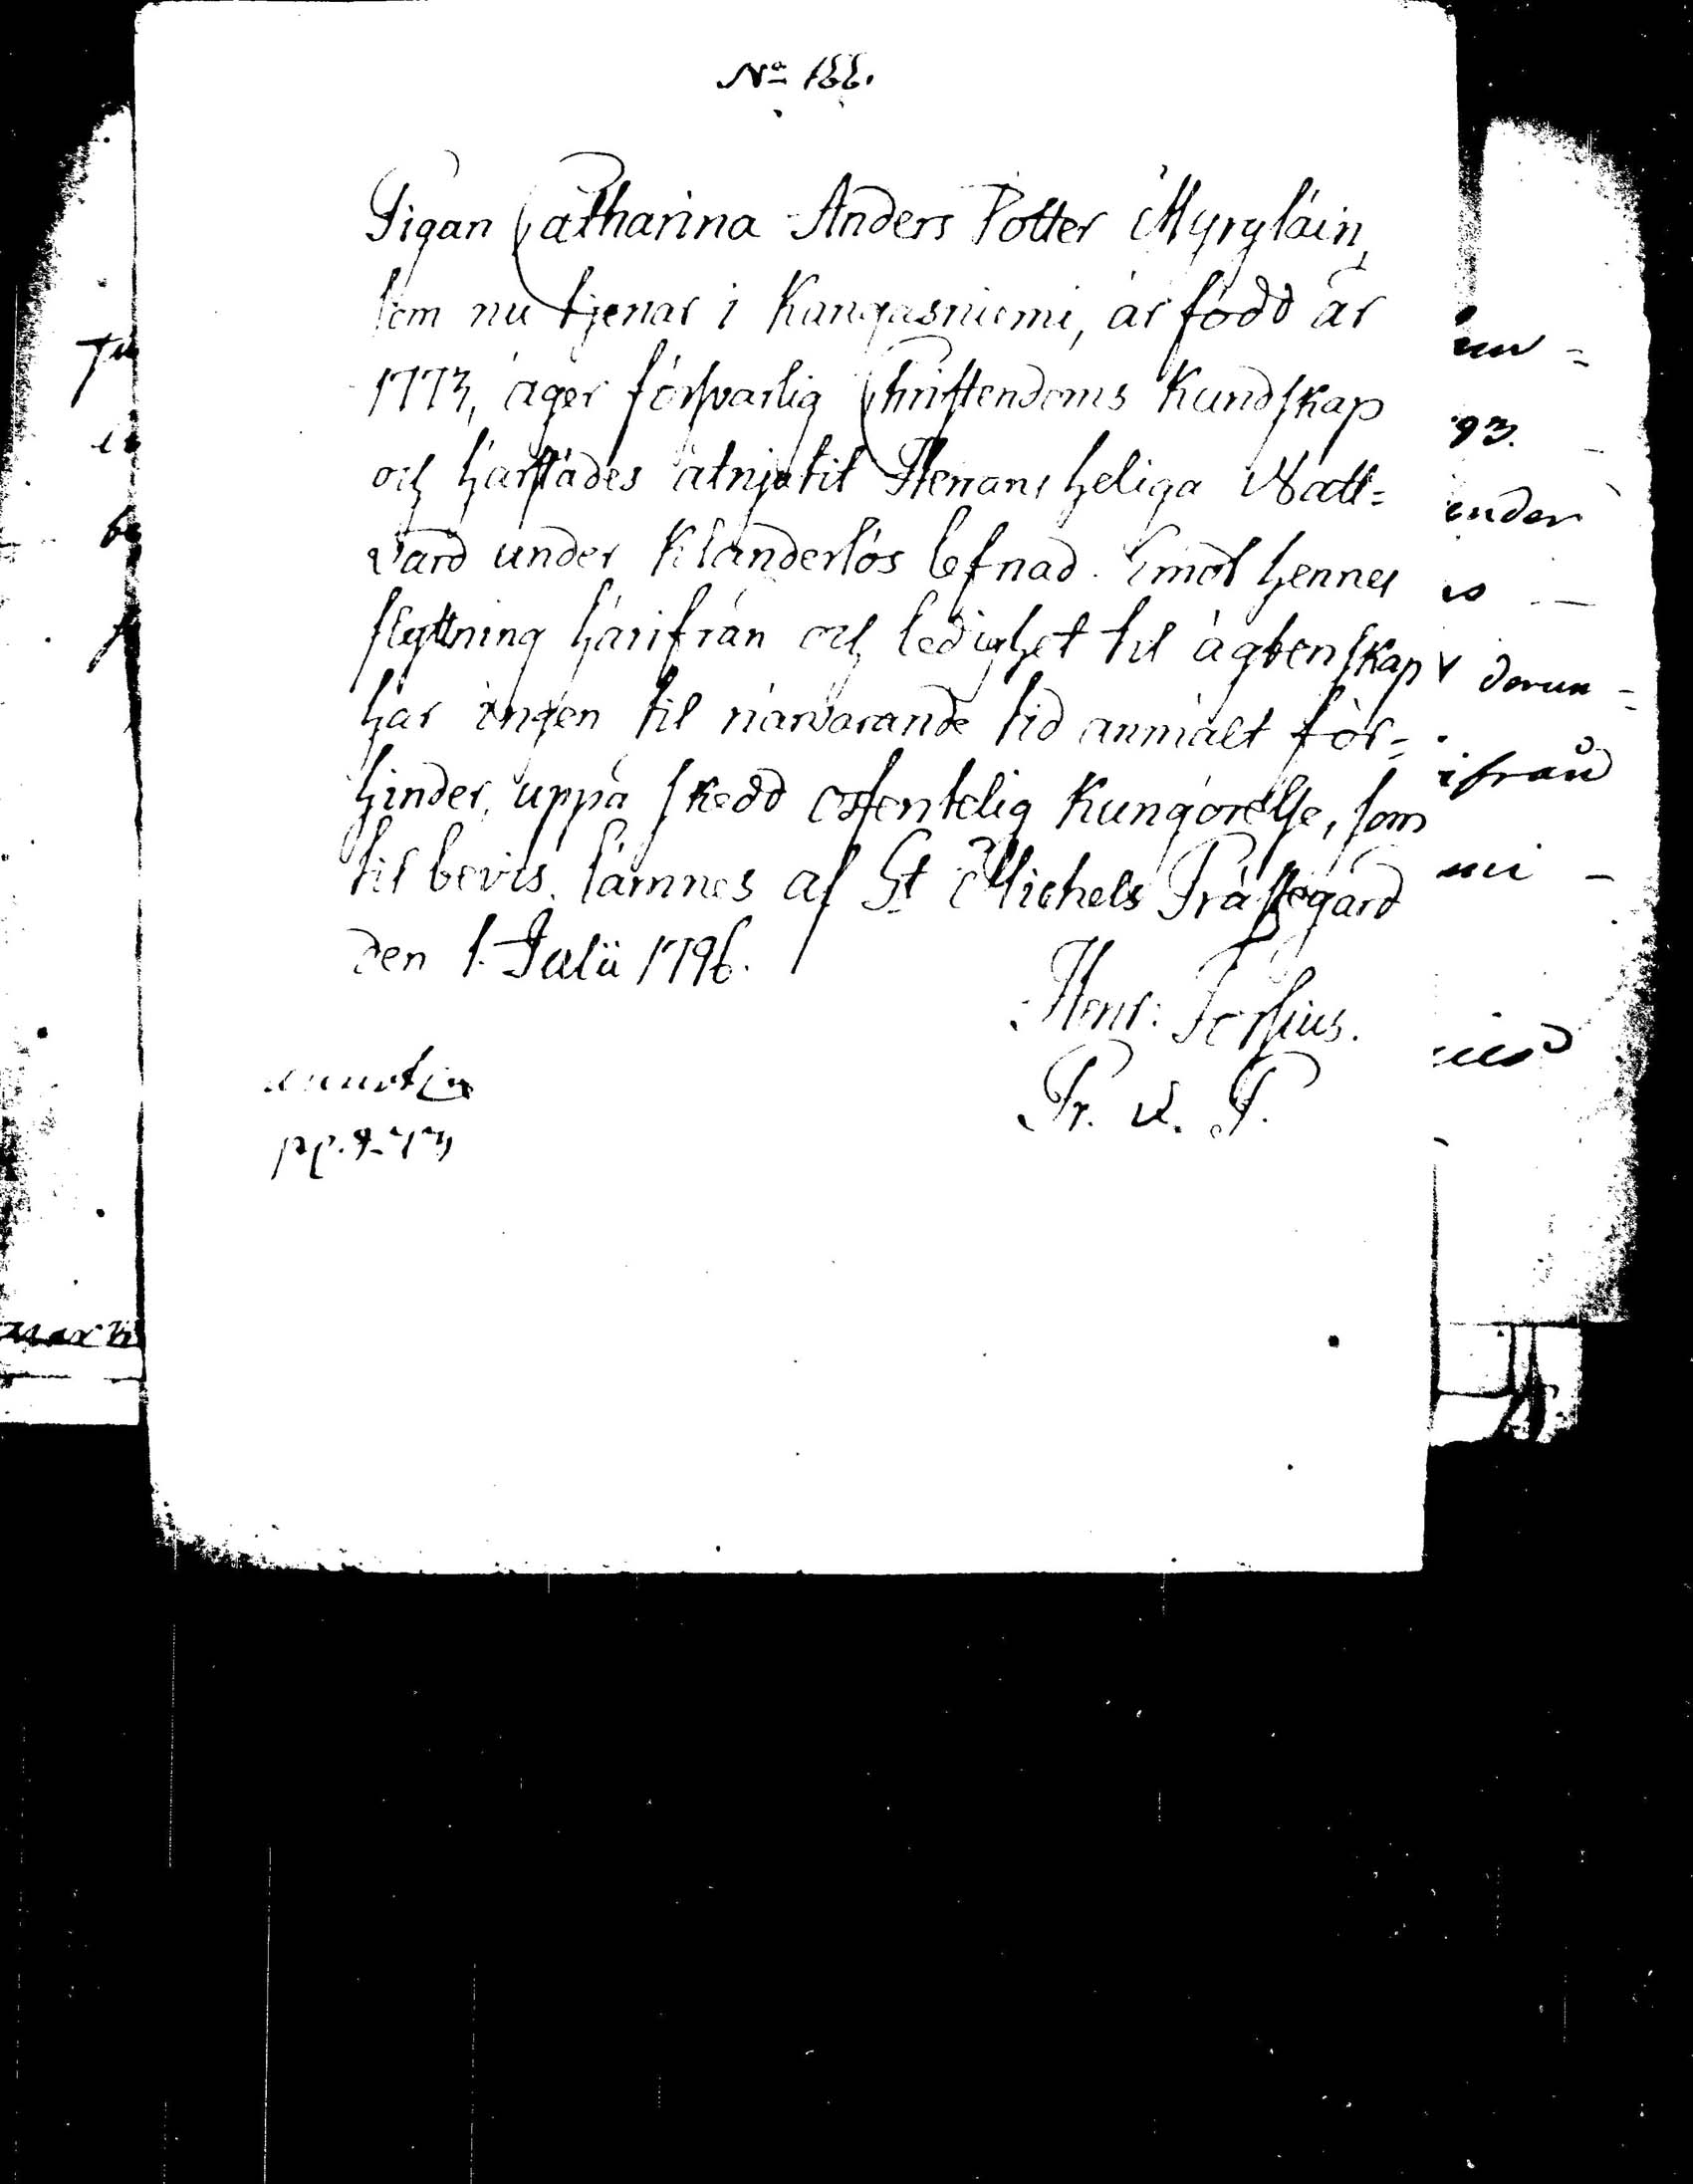 No 166.
Pigan Catharina Anders Dotter Myryläin,
som nu tjenar i Kangasniemi, är född år
1773, äger försvarlig Christendoms Kundskap
och härstädes åtnjutit Herrans heliga Natt=
vard under Klanderlös lefnad. Emot hennes
flyttning härifrån och ledighet til ägtenskap
har ingen til närvarande tid anmält för=
hinder, uppå skedd offentelig Kungörelse, som
til bevis lämnes af St Michels Prästegård
den 1. Julii 1796.
Henr: Forsius.
Pr. V. P.
93.
under
derun=
ifrån
mi -